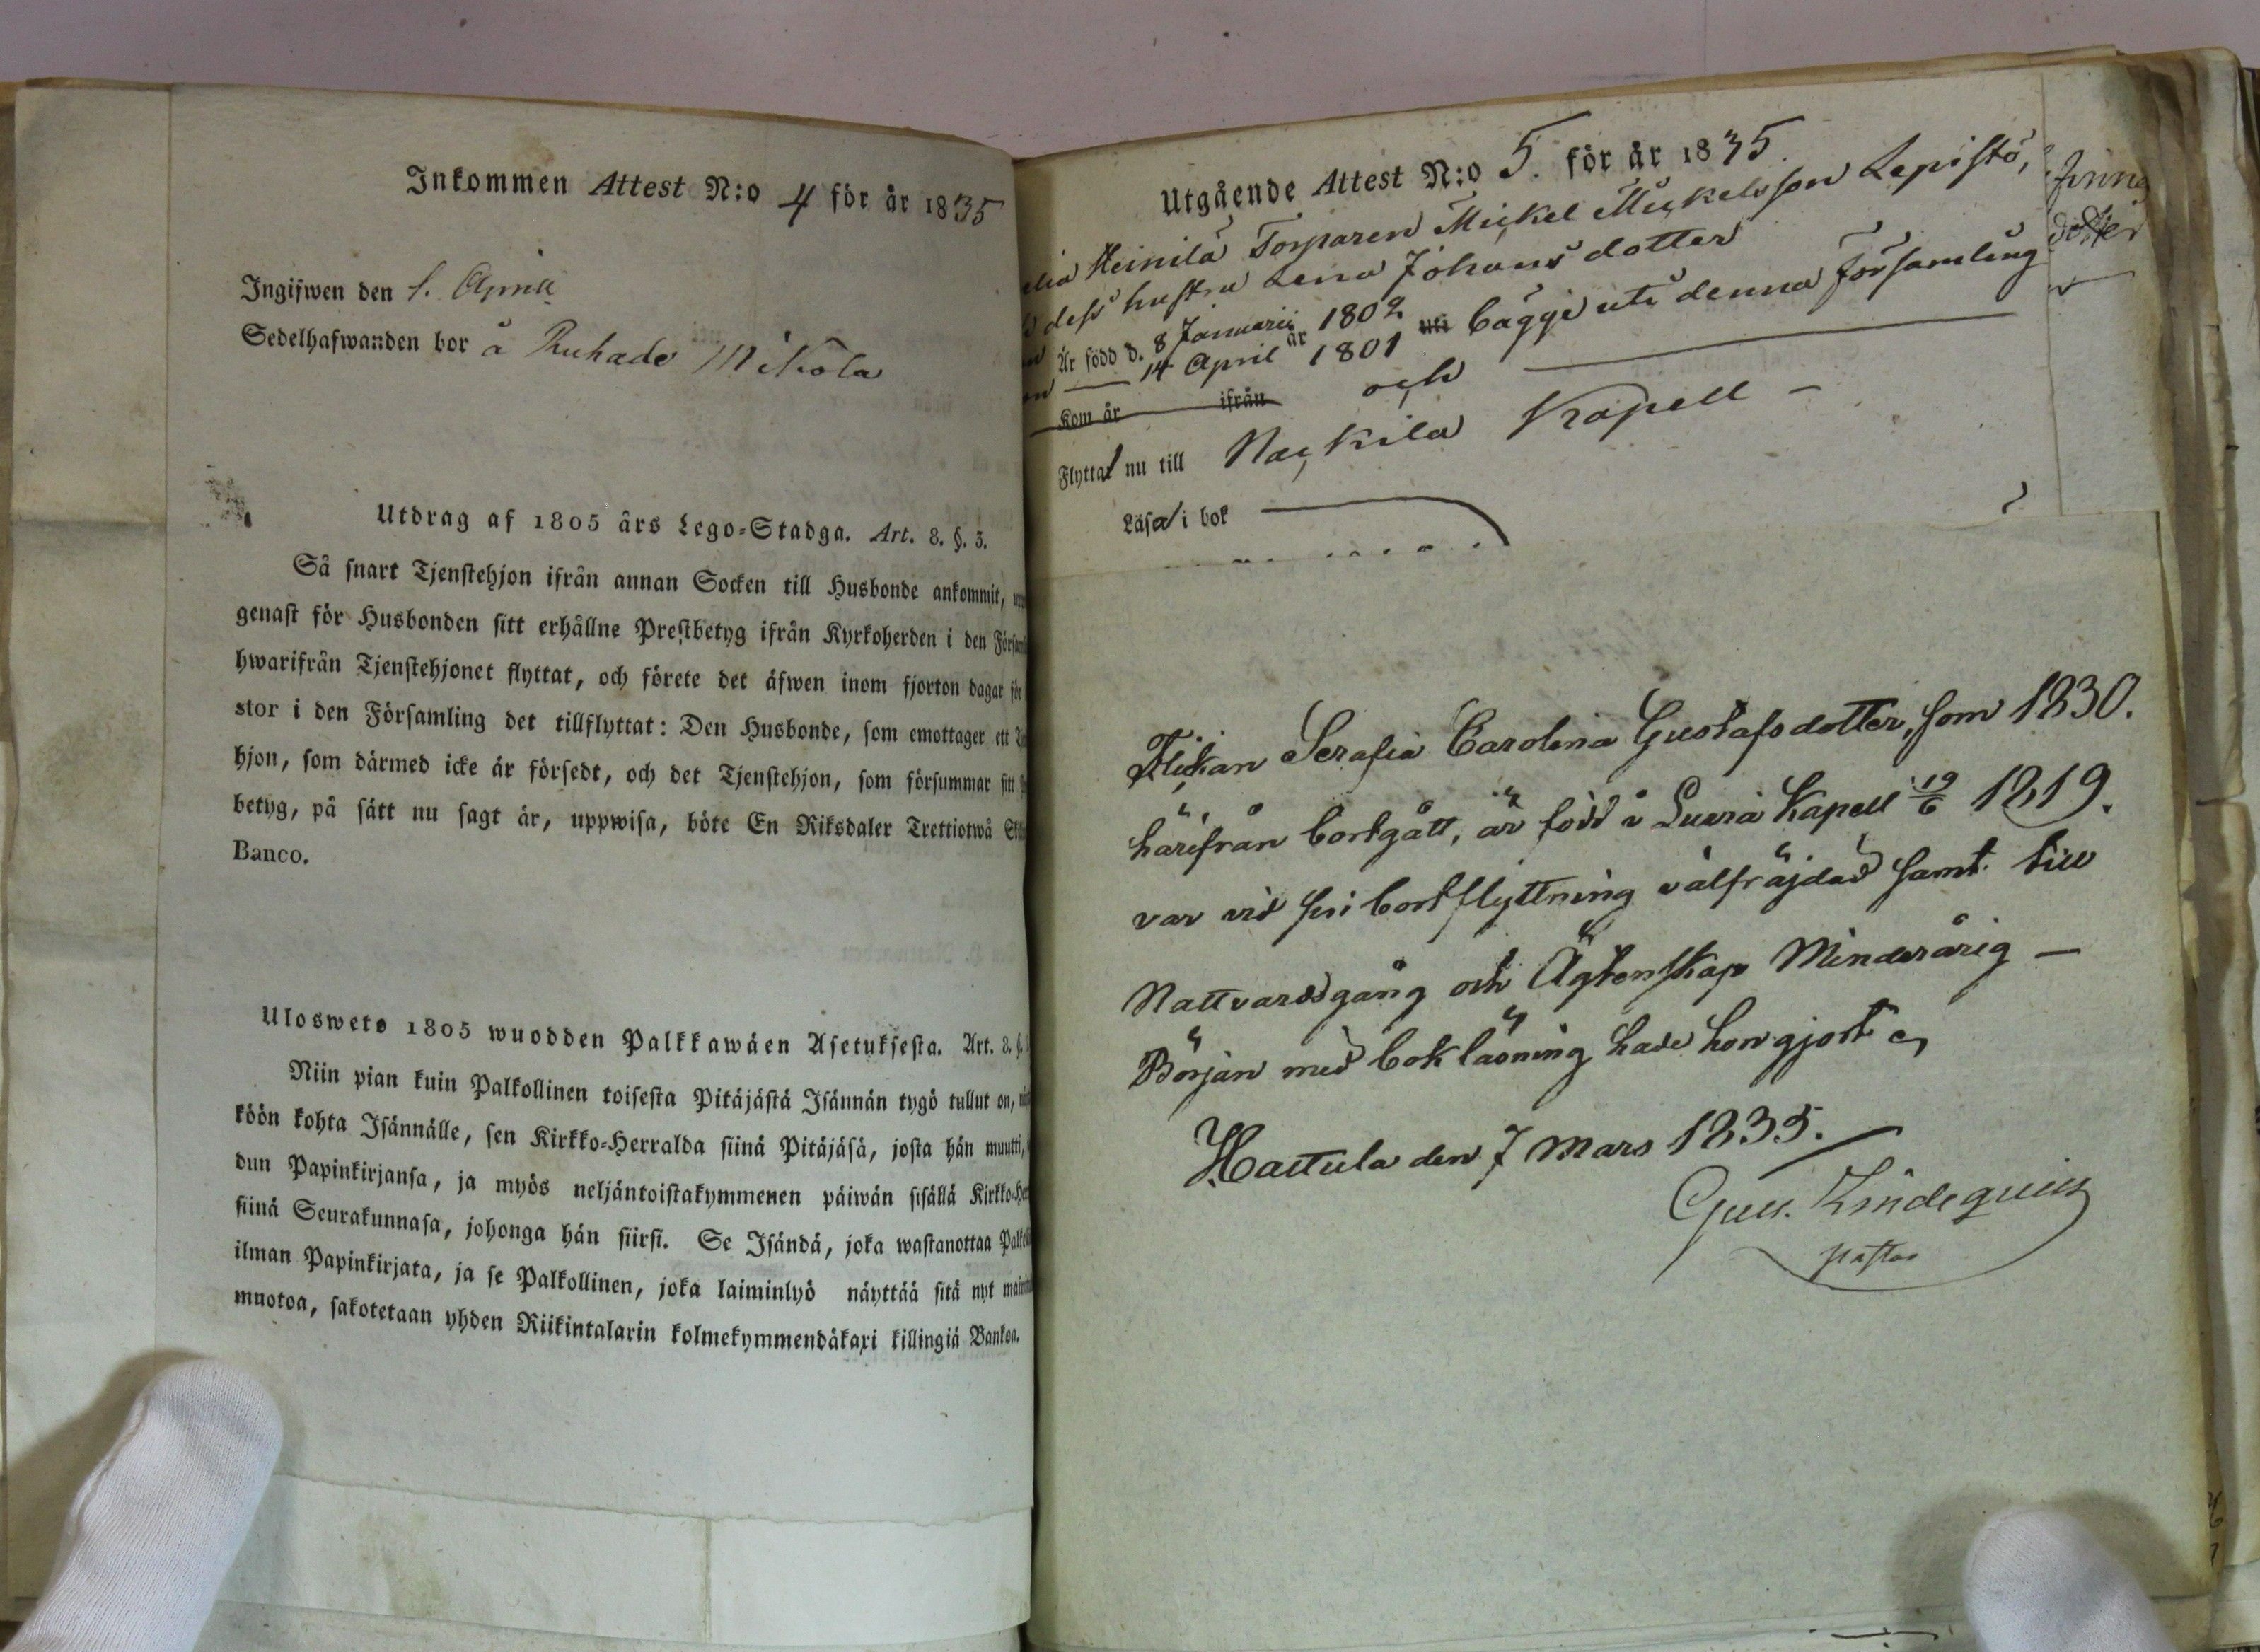 Inkommen Attest N:o 4 för år 1835
Ingifwen den 1. April
Sedelhafwanden bor å Ruhade Mikola
Utdrag af 1805 års Lego-Stadga. Art. 8. §. 3.
Så snart Tjenstehjon ifrån annan Socken till Husbonde ankommit,
genast för Husbonden sitt erhållne Prestbetyg ifrån Kyrkoherden i den
hwarifrån Tjenstehjonet flyttat, och förete det äfwen inom fjorton dagar
stor i den Församling det tillflyttat: Den Husbonde, som emottager ett
hjon, som därmed icke är försedt, och det Tjenstehjon, som försummar sitt
betyg, på sätt nu sagt är, uppwisa, böte En Riksdaler Trettiotwå
Banco.
Ulosweto 1805 wuodden Palkkawäen Asetuksesta. Art. 8. §.
Niin pian kuin Palkollinen toisesta Pitäjästä Isännän tygö tullut on,
köön kohta Isännälle, sen Kirkko-Herralda siinä Pitäjäsä, josta hän muutti,
dun Papinkirjansa, ja myös neljäntoistakymmenen päiwän sisällä
siinä Seurakunnasa, johonga hän siirsi. Se Isändä, joka wastanottaa
ilman Papinkirjata, ja se Palkollinen, joka laiminlyö näyttää sitä nyt
muotoa, sakotetaan yhden Riikintalarin kolmekymmendäkaxi killingiä Bankoa.
Utgående Attest N:o 5. för år 1835.
Heinilä Torparen Mickel Mickelsson Lepistö,
dess hustru Lena Johansdotter
Är född d. 8 Januarii 1802
14 April år 1801 uti bägge uti denna församling
Kom år ifrån och
Flyttat nu till Nackila Kapell -
Läsa i bok
Flickan Serafia Carolina Gustafsdotter, som 1830.
härifrån bortgått, är född i Luvia Kapell 19/6 1819.
var vid sin bortflyttning välfräjdad samt till
Nattvardsgång och Ägtenskap Minderårig —
Början med bokläsning hade hon gjort
Hattula den 7 Mars 1835.
Gust. Zindequist
pastor